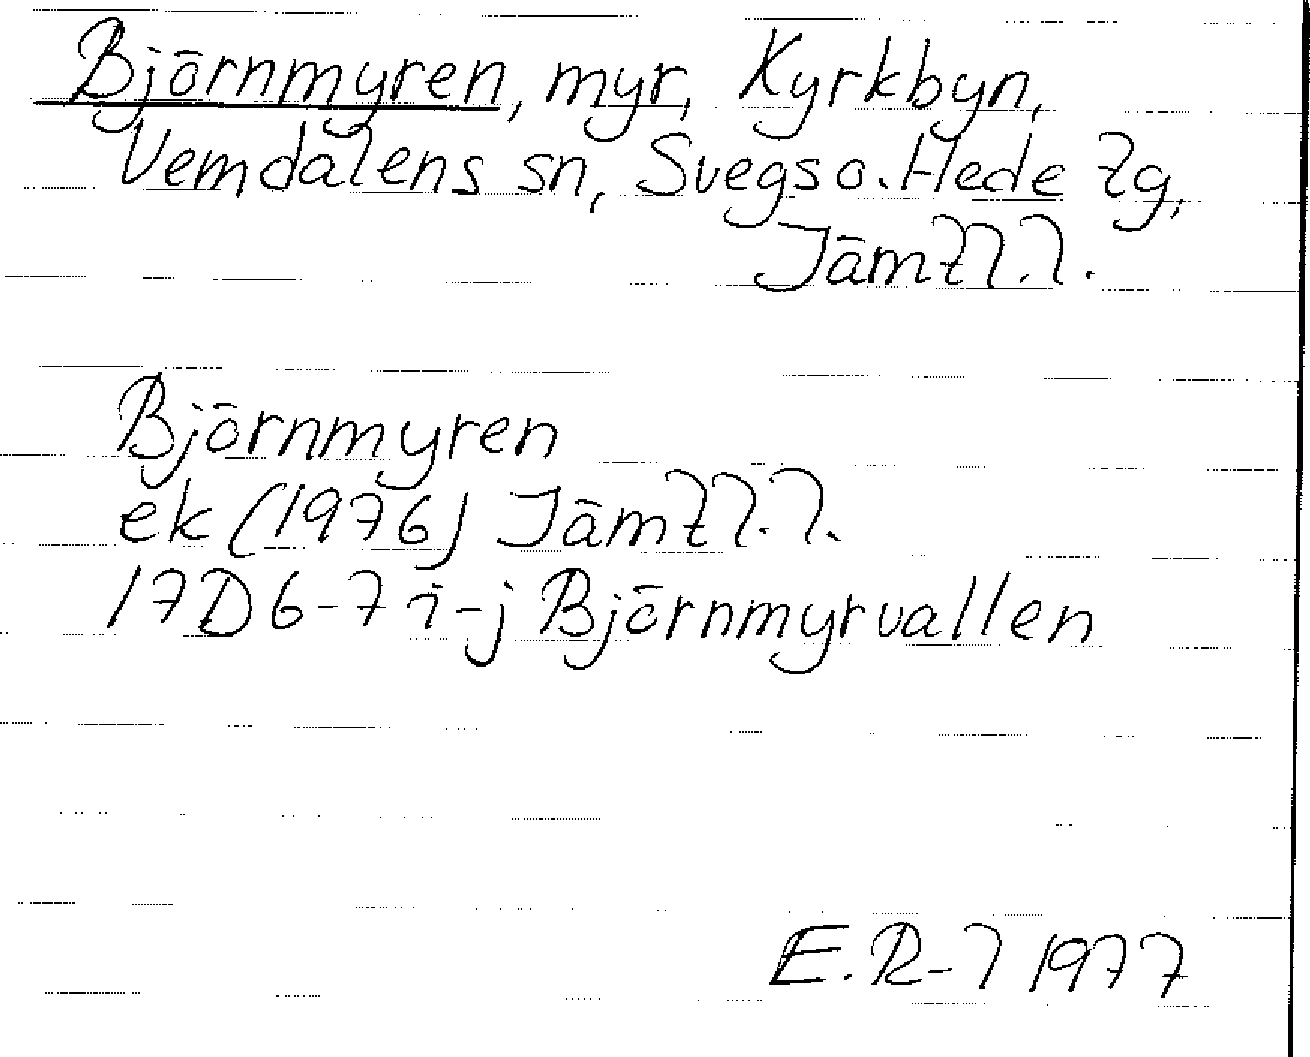 Björnmyren, myr, Kyrkbyn,
Vemdalens sn, Svegs o. Hede tg,
Jämtl. l.
Björnmyren
ek (1976) Jämtl. l.
17D 6-7 i-j Björnmyrvallen
E. R-l 1977